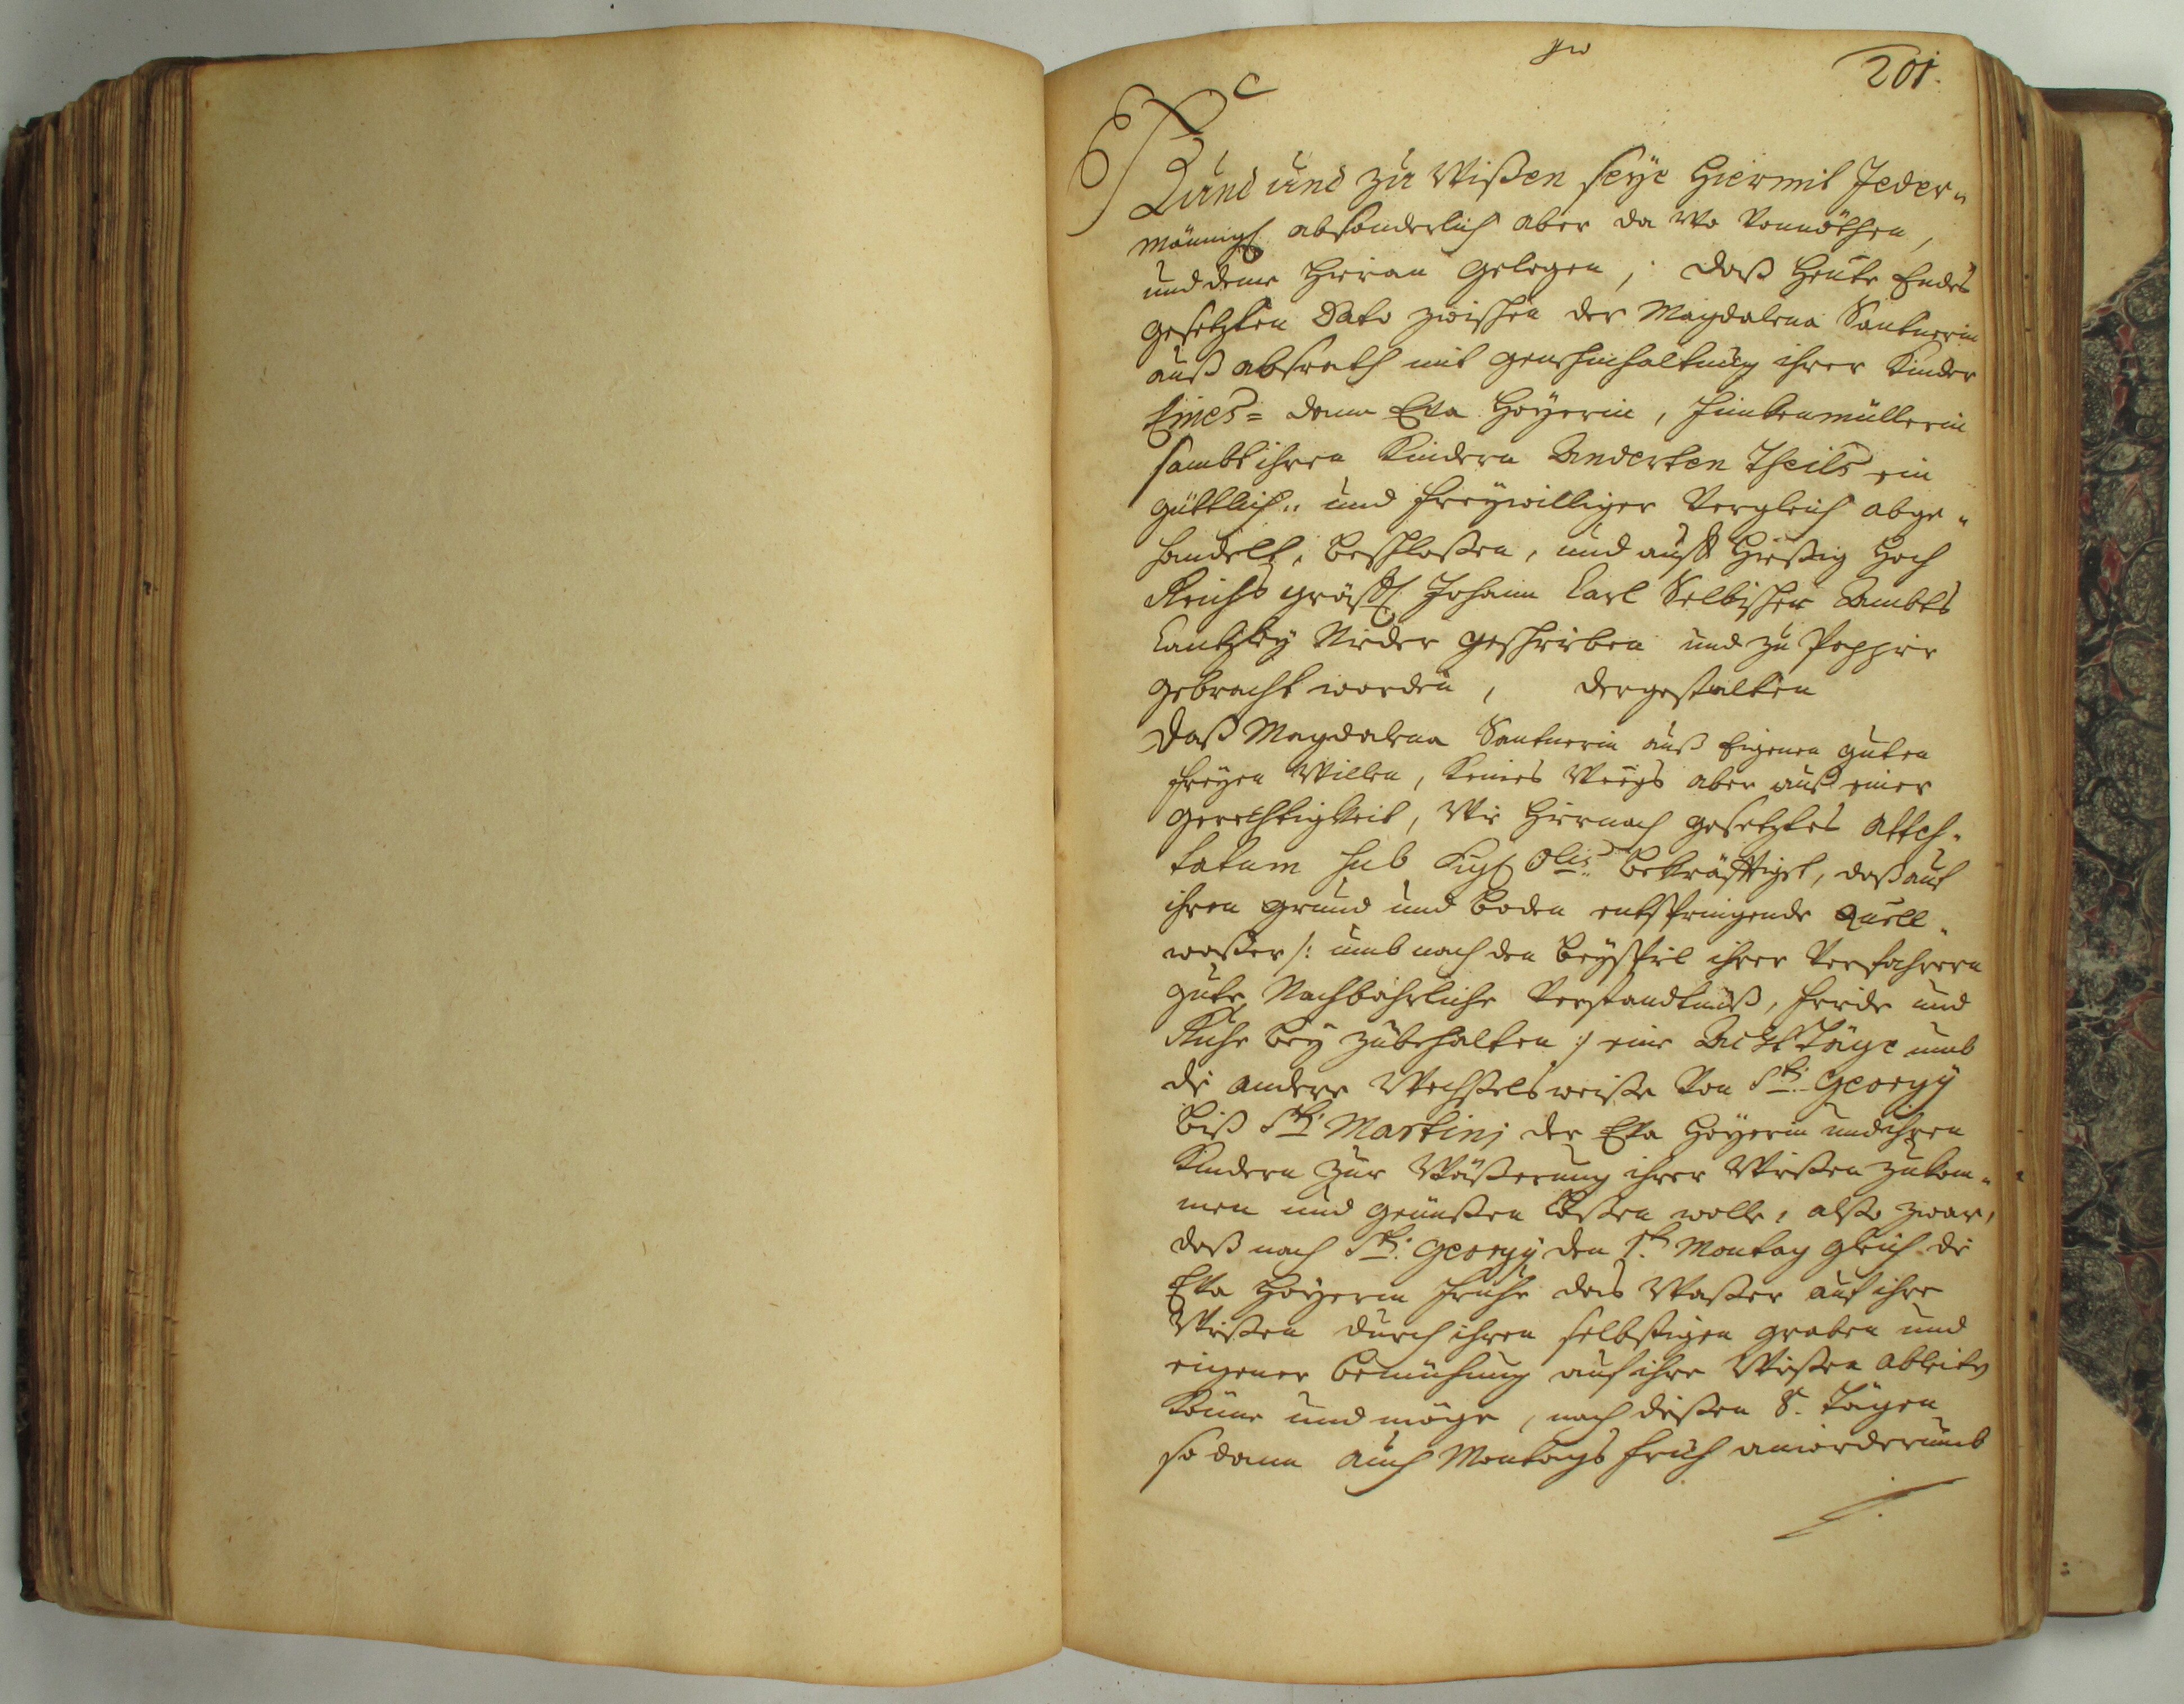 201.
Kund und zu Wißen seÿe Hiermit Jeder„
männigl. absonderlich aber da wo Vonnöthen,
und deme hieran gelegen, daß heute Endes
gesetzten Dato zwischen der Magdalena Santnerin
auß mit genehmhaltung ihrer Kinder
Eines= dann Eva Hoÿerin,
sambt ihren Kindern Anderten Theils ein
güttlich„ und freÿwilliger Vergleich abge„
handelt, beschloßen, und auß hießig Hoch
Reichs gräffl. Johann Carl Ambts
Cantzleÿ Nieder geschrieben und zu Pappier
gebracht worden, dergestalten
Daß Magdalena Santnerin auß Eigenen guten
freÿen Willen, Keines Weegs aber auß einer
gerechtigkeit, Wie hiernach gesetztes Attes„
tatum sub bekräfftiget, daß auf
ihren grund und boden entspringende Quell„
waßer /: umb nach den Beÿspiel ihrer Vorfahrern
gute Nachbahrliche Verstandtnuß, fride und
Ruhe beÿ zubehalten :/ eine Acht Täge umb
die andere Wechselsweiße Von Sti. Georgÿ
biß Sti. Martini der Eva Hoÿerin und ihren
Kindern zur Wäßerung ihrer Wießen zukom„
men und genüßen laßen wolle, also zwar,
daß nach Sti. Georgÿ den 1t. Montag gleich die
Eva Hoÿerin fruhe das Waßer auf ihre
Wießen durch ihren selbstigen graben und
eigener bemühung auf ihre Wießen ableiten
könne und möge, nach dießen 8. Tägen
so dann auch Montags fruh anwiderumb